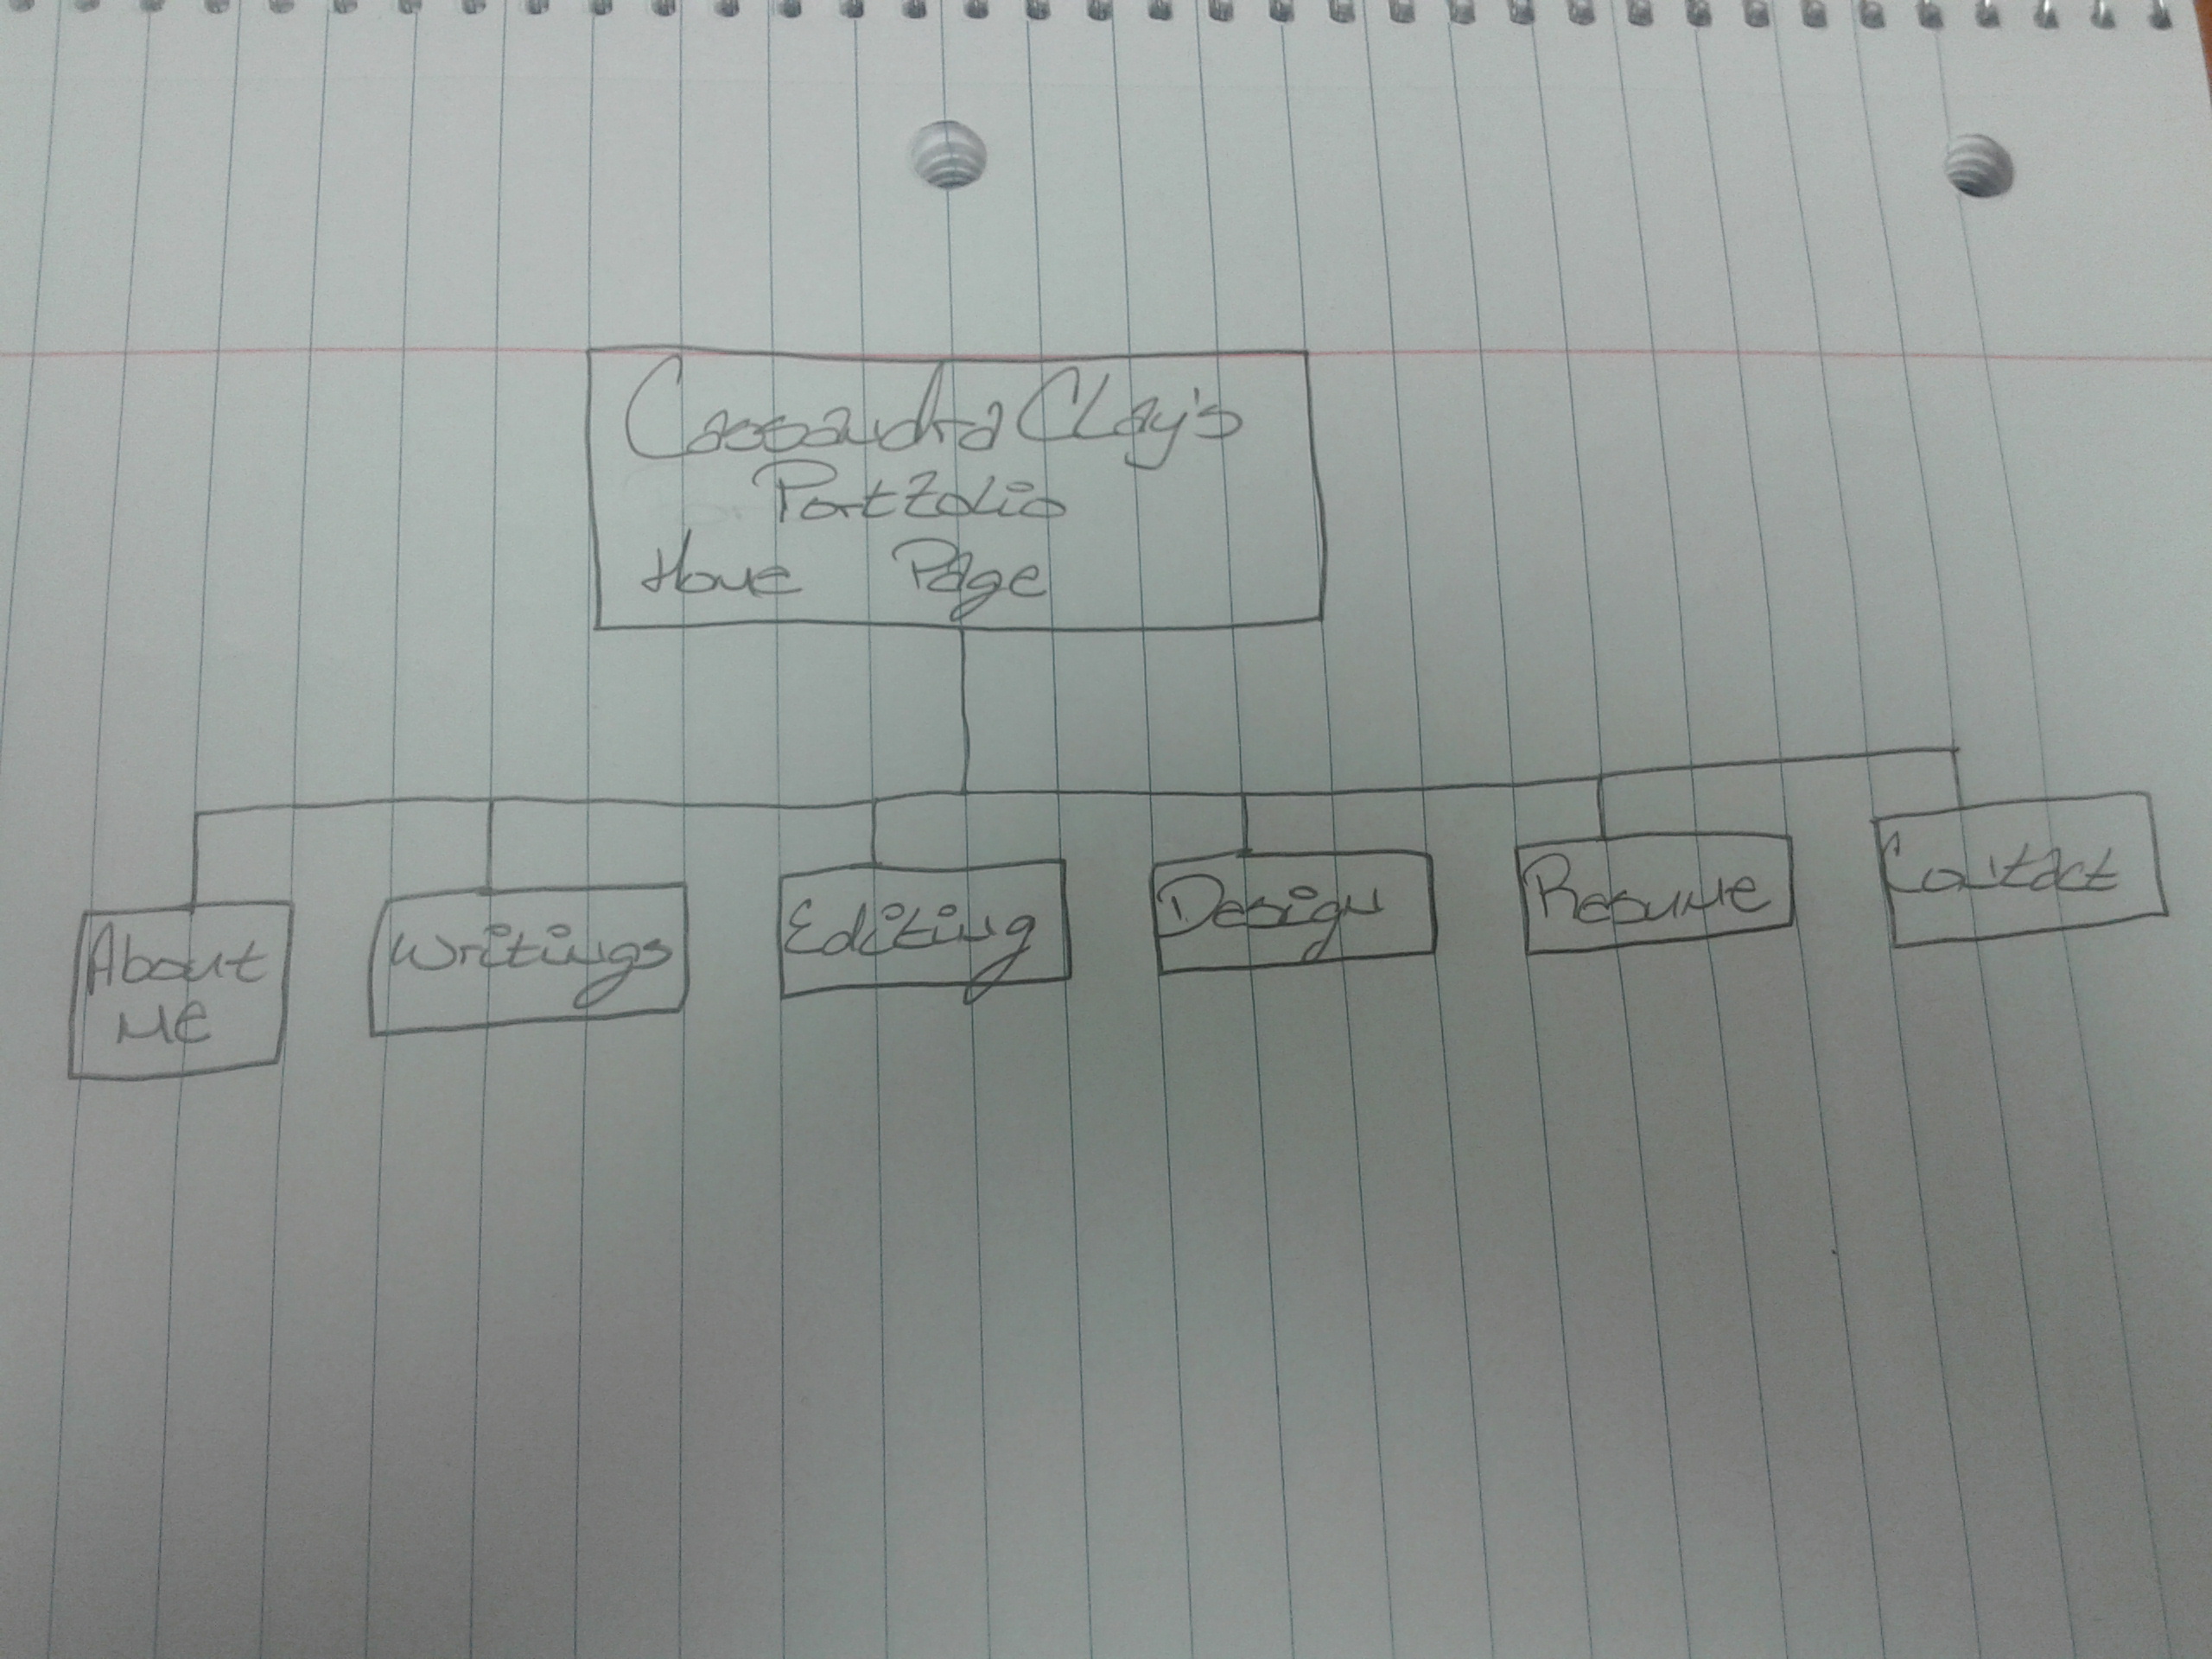 Cassandra Clay's
Portfolio
Home Page
About
Me
Writings
Editing
Design
Resume
Contact